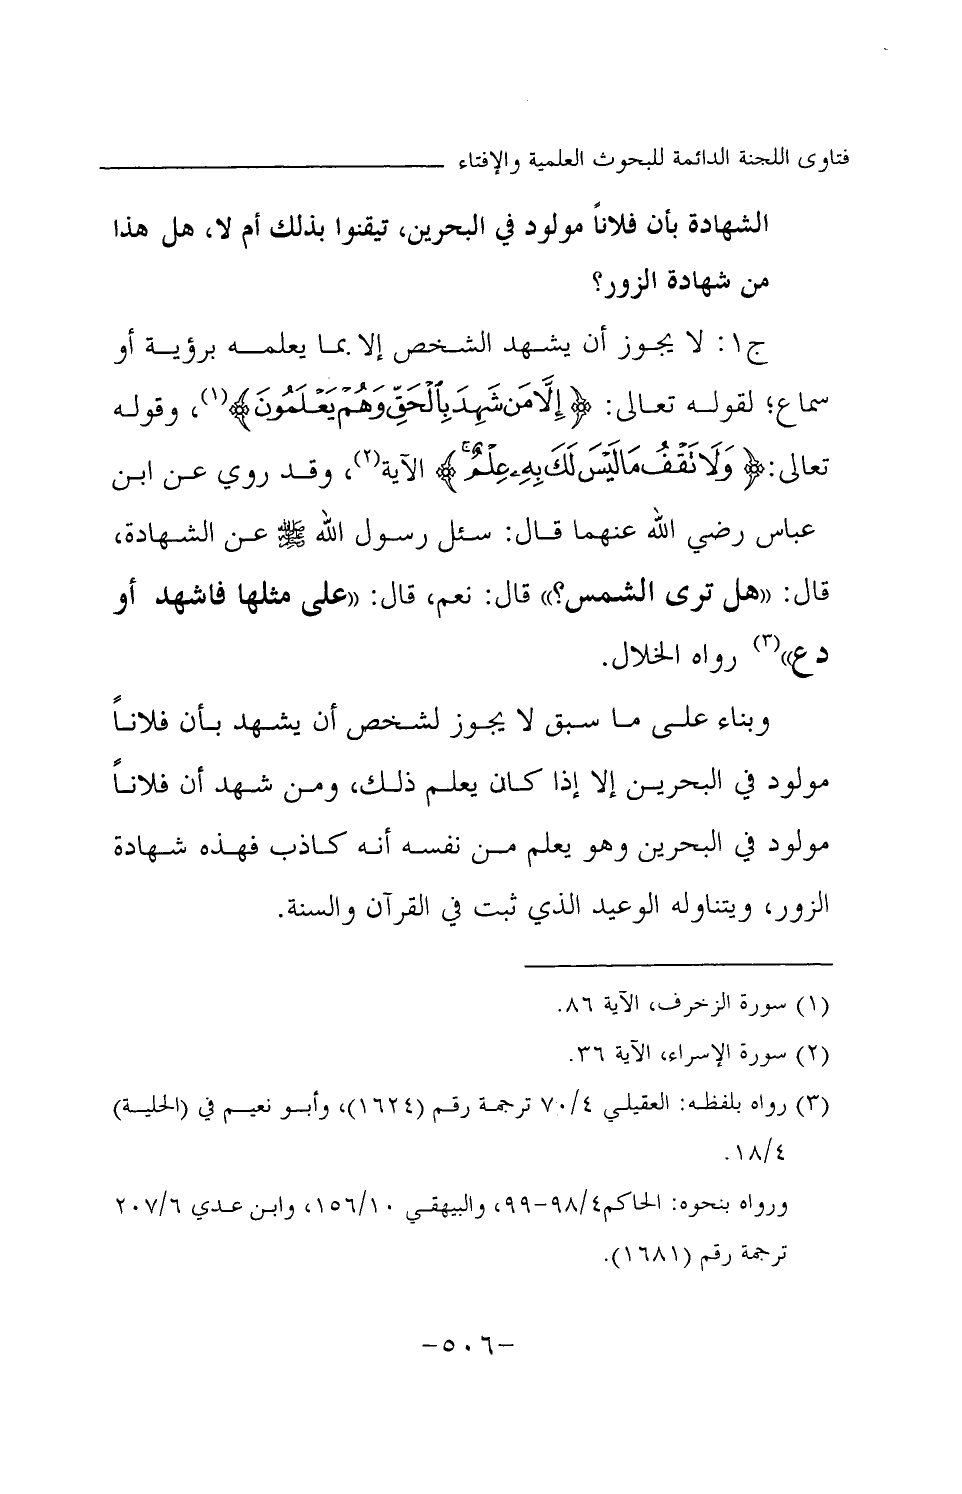 فتاوى اللجنة الدائمة للبحوث العلمية والإفتاء
الشهادة بأن فلاناً مولود في البحرين، تيقنوا بذلك أم لا، هل هذا
من شهادة الزور؟
ج١: لا يجوز أن يشهد الشخص إلا بما يعلمه برؤية أو
سماع؛ لقوله تعالى: ﴿إِلَّا مَن شَهِدَ بِالْحَقِّ وَهُمْ يَعْلَمُونَ﴾(١)، وقوله
تعالى: ﴿وَلَا تَقْفُ مَا لَيْسَ لَكَ بِهِ عِلْمٌ﴾ الآية(٢)، وقد روي عن ابن
عباس رضي الله عنهما قال: سئل رسول الله ﷺ عن الشهادة،
قال: «هل ترى الشمس؟» قال: نعم، قال: «على مثلها فاشهد أو
دع»(٣) رواه الخلال.
وبناء على ما سبق لا يجوز لشخص أن يشهد بأن فلاناً
مولود في البحرين إلا إذا كان يعلم ذلك، ومن شهد أن فلاناً
مولود في البحرين وهو يعلم من نفسه أنه كاذب فهذه شهادة
الزور، ويتناوله الوعيد الذي ثبت في القرآن والسنة.
(١) سورة الزخرف، الآية ٨٦.
(٢) سورة الإسراء، الآية ٣٦.
(٣) رواه بلفظه: العقيلي ٧٠/٤ ترجمة رقم (١٦٢٤)، وأبو نعيم في (الحلية)
١٨/٤.
ورواه بنحوه: الحاكم ٩٨/٤-٩٩، والبيهقي ١٥٦/١٠، وابن عدي ٢٠٧/٦
ترجمة رقم (١٦٨١).
-٥٠٦-